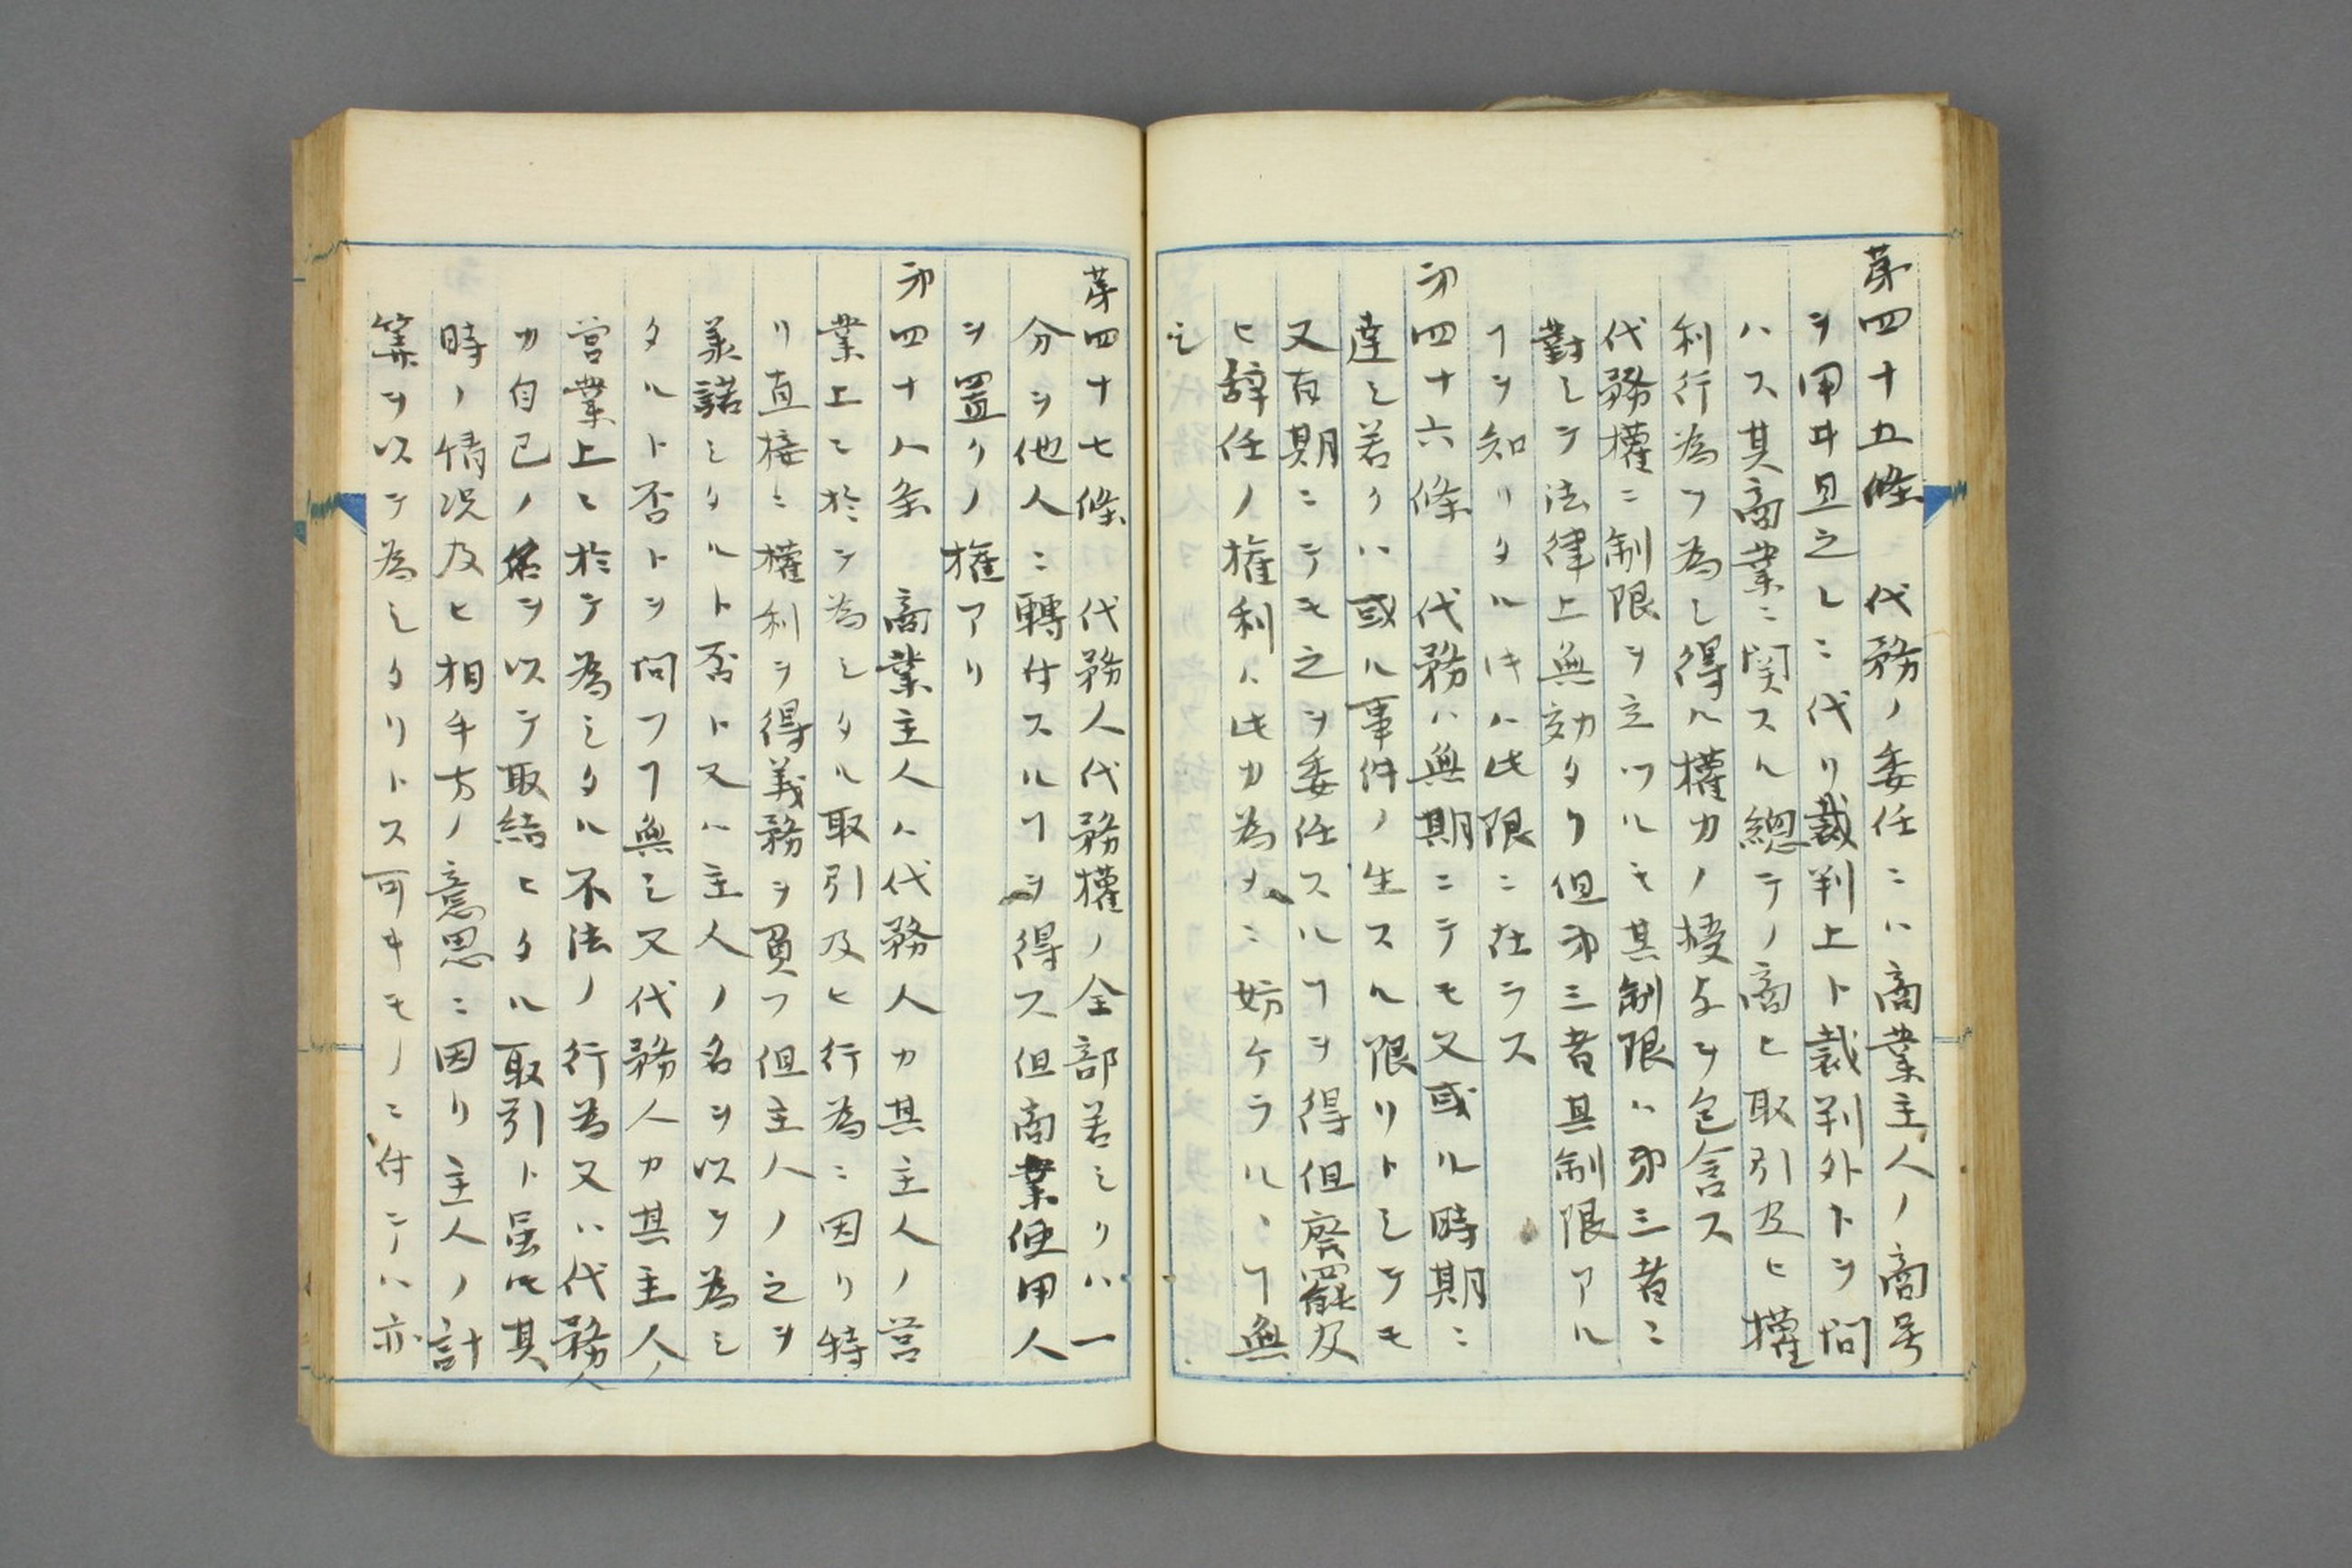 第四十五條　代務ノ委任ニハ商業主人ノ商号
ヲ用ヰ且之レニ代リ裁判上ト裁判外トヲ問
ハス其商業ニ関スル總テノ商ヒ取引及ヒ權
利行為フ為シ得ル權力ノ授与ヲ包含ス
代務權ニ制限ヲ立ツルモ其制限ハ第三者ニ
對シテ法律上無効タリ但第三者其制限アル
ヿヲ知リタル𪜈ハ此限ニ在ラス
第四十六條　代務ハ無期ニテモ又或ル時期ニ
達シ若クハ或ル事件ノ生スル限リトシテモ
又有期ニテモ之ヲ委任スルヿヲ得但廃罷及
ヒ辞任ノ権利ハ此カ為メニ妨ケラルヽヿ無
シ
第四十七條　代務人代務權ノ全部若シクハ一
分ヲ他人ニ轉付スルヿヲ得ス但商業使用人
ヲ置クノ権アリ
第四十八条　商業主人ハ代務人カ其主人ノ営
業上ニ於テ為シタル取引及ヒ行為ニ因リ特
リ直接ニ權利ヲ得義務ヲ負フ但主人ノ之ヲ
承諾シタルト否ト又ハ主人ノ名ヲ以テ為シ
タルト否トヲ問フヿ無シ又代務人カ其主人ノ
営業上ニ於テ為シタル不法ノ行為又ハ代務人
カ自己ノ名ヲ以テ取結ヒタル取引ト虽𪜈其
時ノ情况及ヒ相手方ノ意思ニ因リ主人ノ計
算ヲ以テ為シタリトス可キモノニ付テハ亦